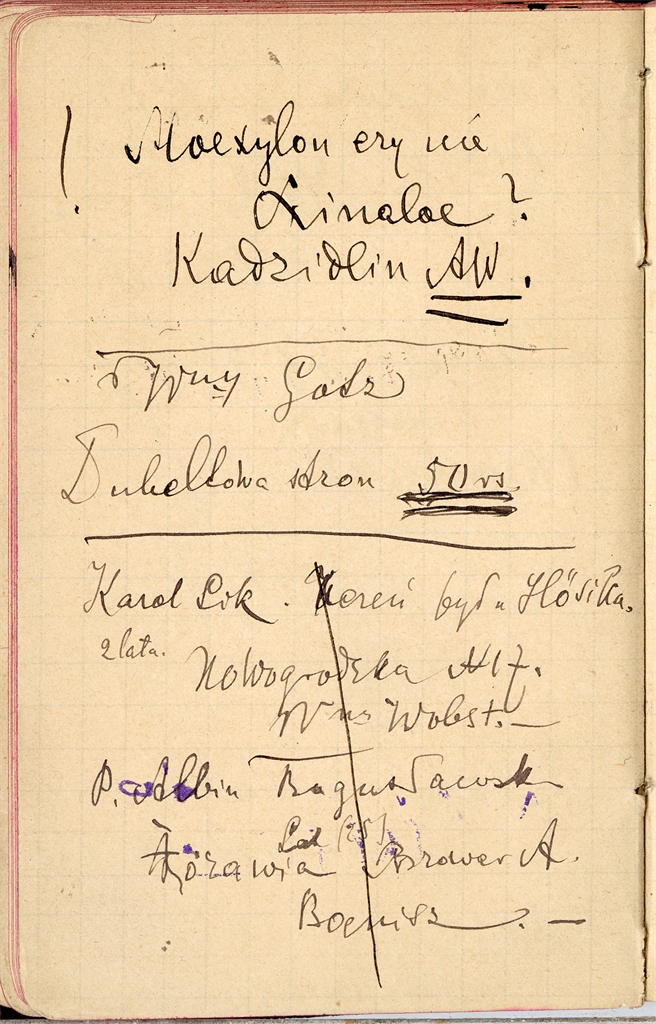 ! Aloexylon czy nie
Linaloe?
Kadzidlin AW.
Gotz
Dubeltowa stron 50 rs.
Karol Lik. Uczeń był u Hösika.
2 lata.
Nowogrodzka N17.
Wobst. —
P. Albin Bogusławsk
Lat (25)
Żórawia Browar A.
Boenisz. —